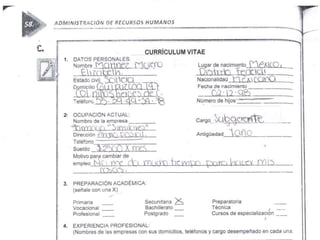 58. ADMINISTRACIÓN DE RECURSOS HUMANOS
C.
CURRÍCULUM VITAE
1. DATOS PERSONALES:
Nombre Martinez Lugar de nacimiento México,
Elizabeth Distrito Federal
Estado civil Soltera Nacionalidad Mexicana
Domicilio Fecha de nacimiento
Col niños heroes 02-12-98
Teléfono 55-39-49-34-78 Número de hijos
2. OCUPACIÓN ACTUAL:
Nombre de la empresa Cargo Subgerente
Dirección Antigüedad 1 año
Teléfono
Sueldo $2500 x mes
Motivo para cambiar de
empleo No me da mucho tiempo para hacer mis
cosas.
3. PREPARACIÓN ACADÉMICA:
(señale con una X)
Primaria Secundaria X Preparatoria
Vocacional Bachillerato Técnica
Profesional Postgrado Cursos de especialización
4. EXPERIENCIA PROFESIONAL:
(Nombres de las empresas con sus domicilios, teléfonos y cargo desempeñado en cada una.